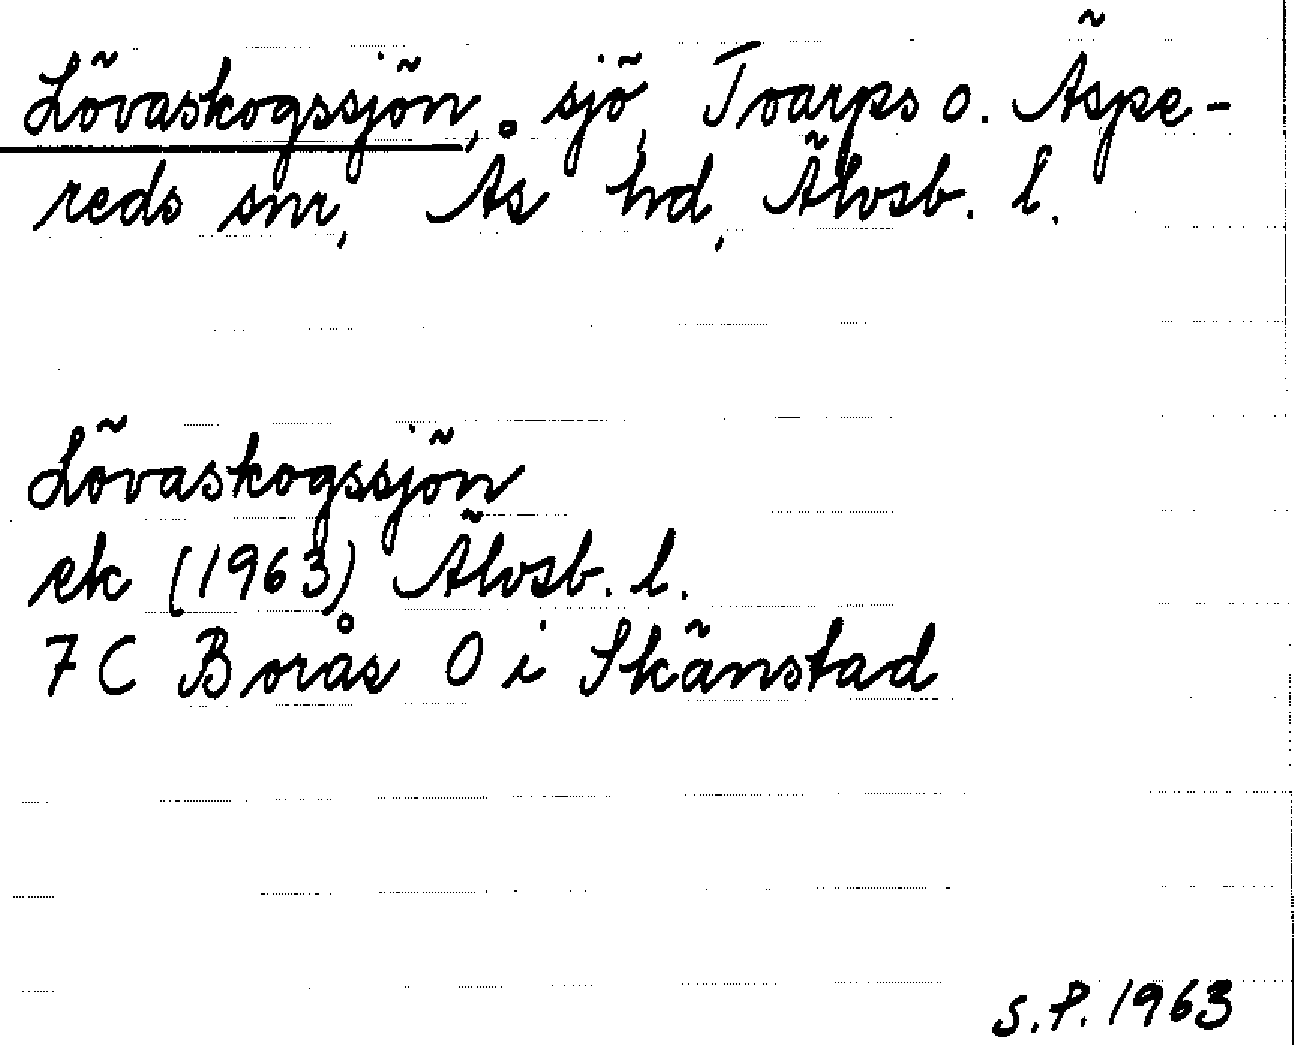 Lövaskogssjön, sjö, Toarps o. Äspe-
reds snr, Ås hd, Älvsb. l.
Lövaskogssjön
ek (1963) Älvsb. l.
7 C Borås O i Skänstad
S.P. 1963